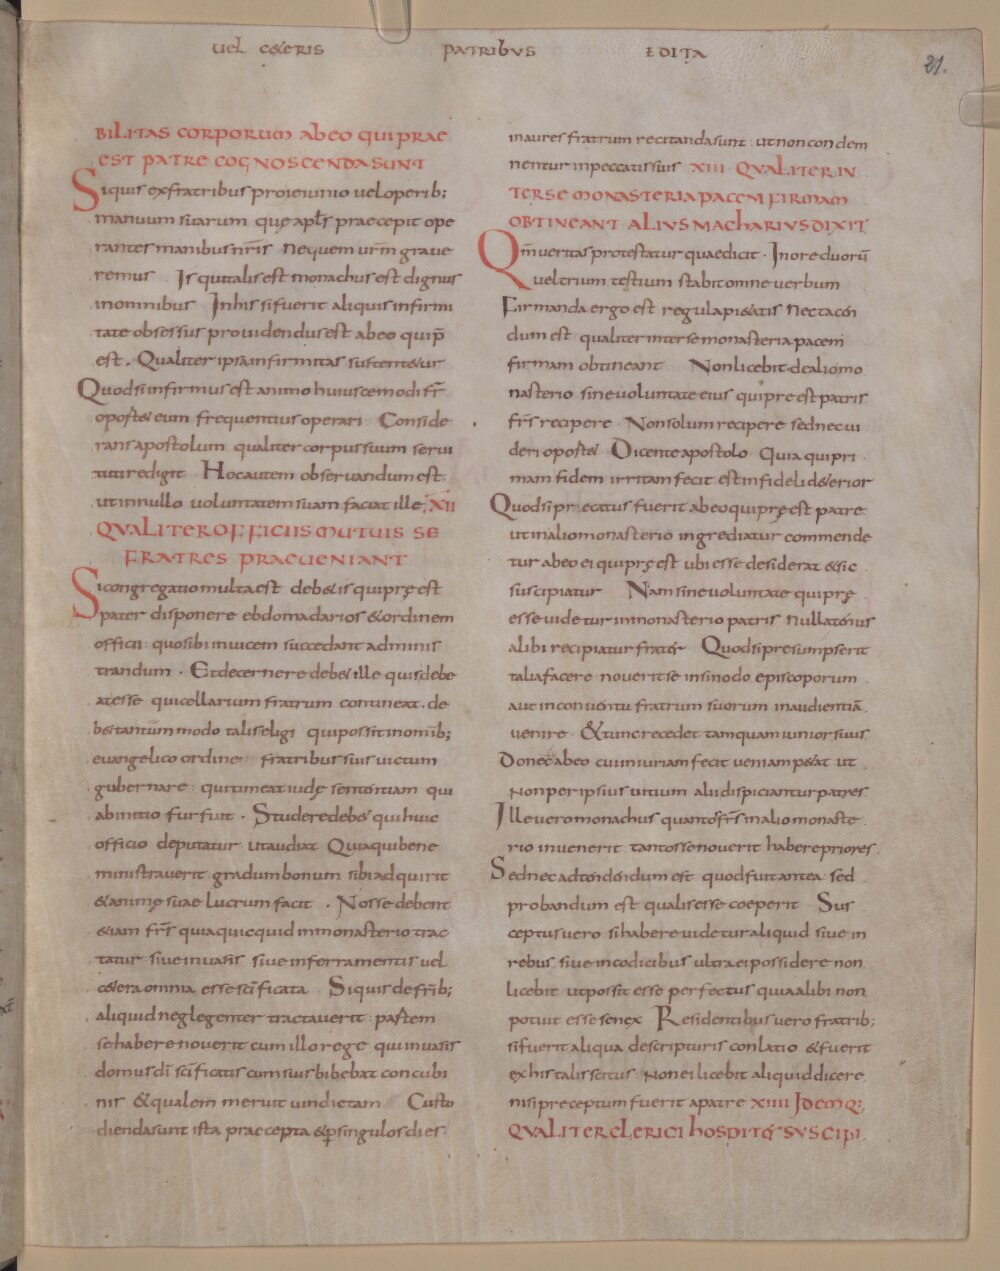 UEL C&ERIS PATRIBUS EDITA
21.
BILITAS CORPORUM AB EO QUI PRAE
EST PATRE COGNOSCENDA SUNT
Siquis ex fratribus pro ieiunio vel operib;
manuum suarum quę apłs praecepit ope
rantes manibus nr̄is Ne quem urm̄ grave
remus Is qui talis est monachus est dignus
in omnibus In his si fuerit aliquis infirmi
tate obsessus providendus est ab eo qui p̄
est. Qualiter ipsa infirmitas sustent&ur
Quod si infirmus est animo huiuscemodi fr̄
oport& eum frequentius operari Conside
rans apostolum qualiter corpus suum servi
tuti redigit Hoc autem observandum est
ut in nullo voluntatem suam faciat ille; XII
QUALITER OFFICIIS MUTUIS SE
FRATRES PRAEVENIANT
Si congregatio multa est deb&is qui pręest
pater disponere ebdomadarios & ordinem
officii quo sibi invicem succedant adminis
trandum. Et decernere deb& ille quis debe
at esse qui cellarium fratrum contineat. de
b& tantummodo talis eligi qui possit in omīb;
evangelico ordine fratribus suis victum
gubernare qui timeat iudę sententiam qui
ab initio fur fuit. Studere deb& qui huic
officio deputatur ut audiat Quia qui bene
ministraverit gradum bonum sibi adquirit
& animę suae lucrum facit. Nosse debent
&iam frs̄ quia quicquid in monasterio trac
tatur sive in vasis sive in ferramentis vel
c&era omnia esse sc̄ificata Siquis de frīb;
aliquid neglegenter tractaverit partem
se habere noverit cum illo rege qui in vasis
domus dī sc̄ificatis cum suis bibebat concubi
nis & qualem meruit vindictam Custo
diendasunt ista praecepta & p singulos dies
in aures fratrum recitanda sunt ut non condem
nentur in peccatis suis XIII QUALITER IN
TER SE MONASTERIA PACEM FIRMAM
OBTINEANT ALIUS MACHARIUS DIXIT
Qm̄ veritas protestatur quae dicit. In ore duorū
vel trium testium stabit omne verbum
Firmanda ergo est regula pi&atis Nec tacen
dum est qualiter inter se monasteria pacem
firmam obtineant Non licebit de alio mo
nasterio sine voluntate eius qui preest patris
frs̄ recipere. Non solum recipere sed nec vi
deri oport& Dicente apostolo Quia qui pri
mam fidem irritam fecit est infideli d&erior
Quod si precatus fuerit ab eo qui pręest patre
ut in alio monasterio ingrediatur commende
tur ab eo ei qui pręest ubi esse desiderat & sic
suscipiatur Nam sine voluntate qui prę
esse videtur in monasterio patris Nullatenus
alibi recipiatur frater Quod si presumpserit
talia facere noverit se in sinodo episcoporum
aut in conventu fratrum suorum in audientiā
venire. & tunc recedet tamquam iunior suus
Donec ab eo cui iniuriam fecit veniam p&at ut
Non per ipsius vitium alii dispiciantur patres
Ille vero monachus quantos frs̄ in alio monaste
rio invenerit tantos se noverit habere priores
Sed nec adtendendum est quod fuit antea sed
probandum est qualis esse coeperit Sus
ceptus vero si habere videtur aliquid sive in
rebus sive in codicibus ultra ei possidere non
licebit ut possit esse perfectus quia alibi non
potuit esse senex Residentibus vero fratrib;
si fuerit aliqua de scripturis conlatio & fuerit
ex his talis scitus Non ei licebit aliquid dicere
nisi preceptum fuerit a patre XIIII IDEM Q;
QUALITER CLERICI HOSPITES SUSCIPI